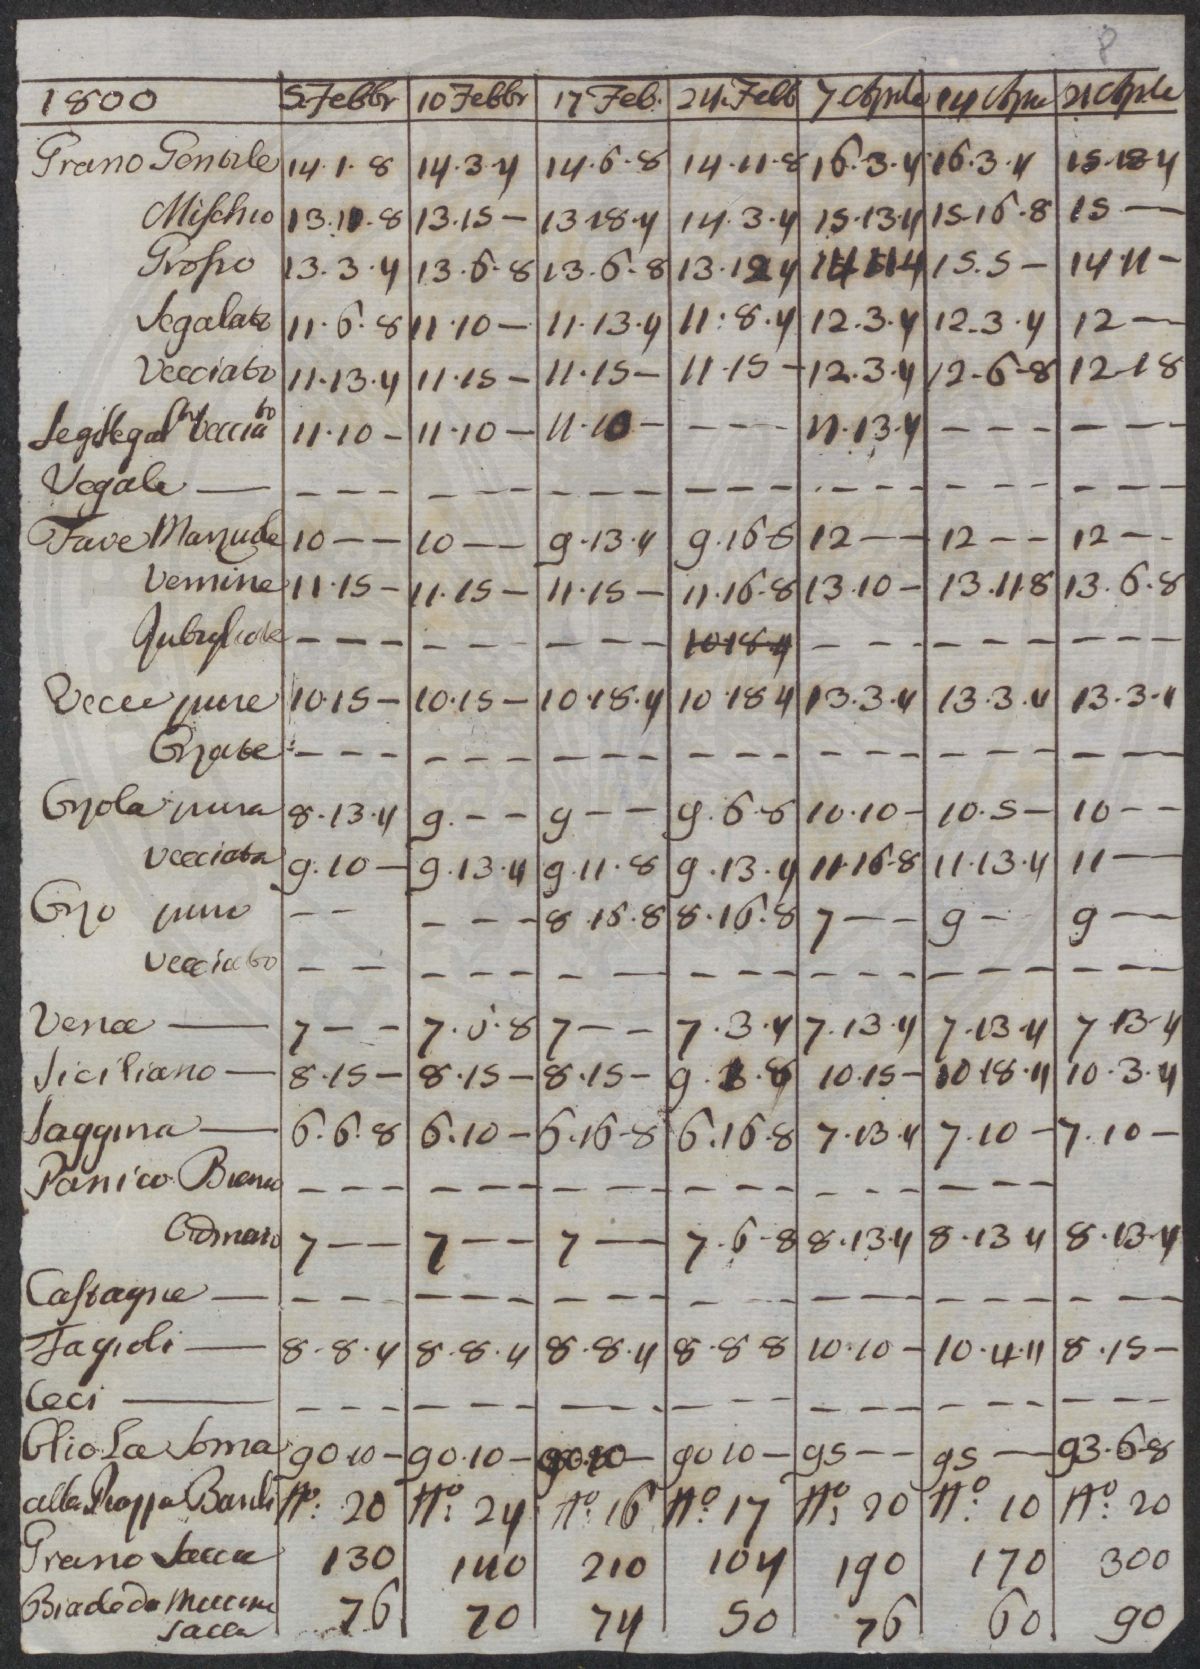 1800 5 Febbr 10 Febbr 17 Feb. 24. Febb 7 Aprile 14 Aprile 21 Aprile
Grano Gentile 14.1.8 14.3.4 14.6.8 14.11.8 16.3.4 16.3.4 15.18.4
Mischio 13.11.8 13.15 — 13.18.4 14.3.4 15.13.4 15.16.8 15 —
Grosso 13.3.4 13.6.8 13.6.8 13.12.4 14.11.4 15.5 — 14 11 —
Segalato 11.6.8 11.10 — 11.13.4 11.8.4 12.3.4 12.3.4 12 —
Vecciato 11.13.4 11.15 — 11.15 — 11.15 — 12.3.4 12.6.8 12.1.8
Vecciato 11.10 — 11.10 — 11.10 — — — — 11.13.4 — — — — — —
Segale — — — — — — — — — — — — — — — — — — — — — —
Fave Marzuole 10 — — 10 — — 9.13.4 9.16.8 12 — — 12 — — 12 — —
Vernine 11.15 — 11.15 — 11.15 — 11.16.8 13.10 — 13.11.8 13.6.8
— — — — — — — — — 10 18.4 — — — — — — — — —
Vecce pure 10.15 — 10.15 — 10.18.4 10 18 4 13.3.4 13.3.4 13.3.4
Orzate — — — — — — — — — — — — — — — — — — — — —
Orzola pura 8.13.4 9. — — 9 — — 9.6.8 10.10 — 10.5 — 10 — —
Vecciata 9.10 — 9.13.4 9.11.8 9.13.4 11.16.8 11.13.4 11 —
Orzo puro — — — — — 8.16.8 8.16.8 7 — — 9 — 9 —
Vecciato — — — — — — — — — — — — — — — — — — —
Vena — 7 — — 7.0.8 7 — — 7.3.4 7.13.4 7.13.4 7 13.4
Siciliano — 8.15 — 8.15 — 8.15 — 10.15 — 10 18.4 10.3.4
Saggina — 6.6.8 6.10 — 6.16.8 6.16.8 7.13.4 7.10 — 7.10 —
Panico — — — — — — — — — — — — — — — — — —
7 — — 7 — — 7 — 7.6.8 8.13.4 8.13 4 8.13.4
Castagne — — — — — — — — — — — — — — — — — — — — —
Fagioli — 8.8.4 8.8.4 8.8.4 8.8 8 10.10 — 10.4.4 8.15 —
Ceci — — — — — — — — — — — — — — — — — — — — — —
Olio La Soma 90.10 — 90.10 — 90.10 — 90 10 — 95 — — 95 — 93.6.8
alla Grappa Barili N.º 20 N.º 24 N.º 16 N.º 17 N.º 20 N.º 10 N.º 20
Grano Sacca 130 140 210 104 190 170 300
Biade da Maccina 76 70 74 50 76 60 90
Sacca